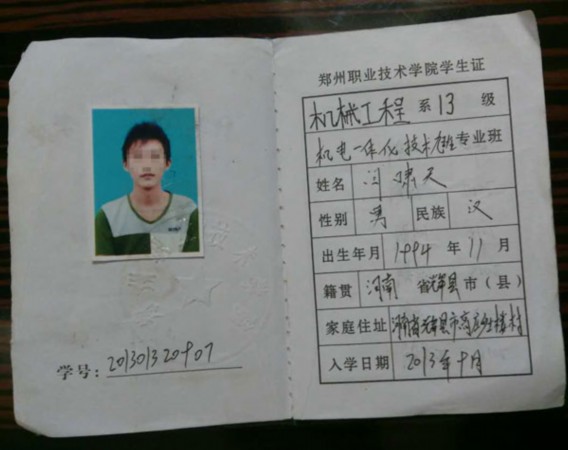 学号：201301320907
郑州职业技术学院学生证
机械工程 系 13 级
机电一体化技术 专业班
姓名 闫啸天
性别 男 民族 汉
出生年月 1994 年 11 月
籍贯 河南 省 辉县 市（县）
家庭住址 河南省辉县市高庄乡
入学日期 2013年9月